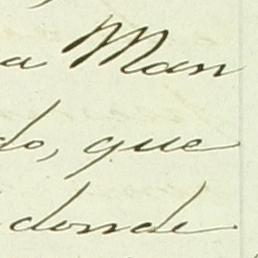 a Man
do, que
donde